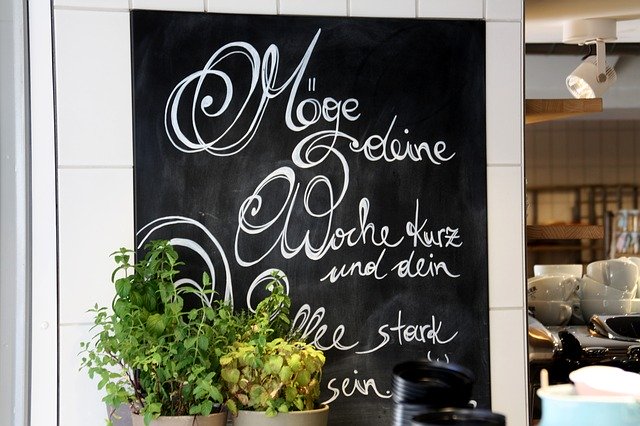 Möge
deine
Woche kurz
und dein
stark
sein.